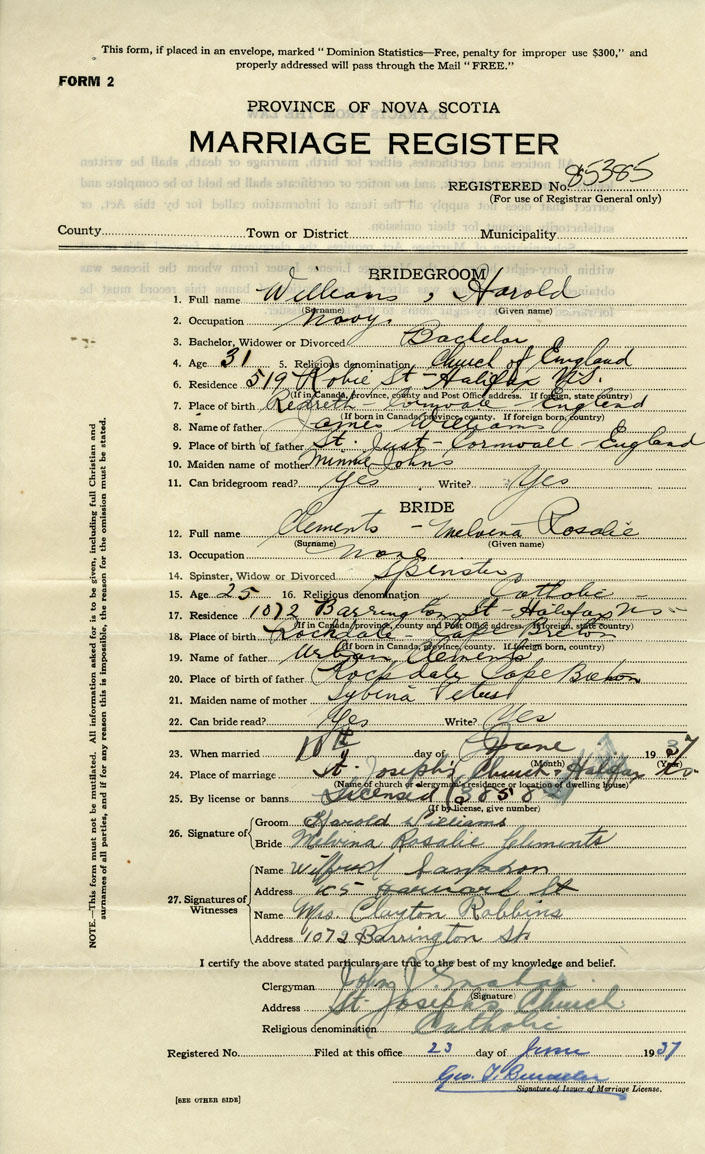 This form, if placed in an envelope, marked "Dominion Statistics—Free, penalty for improper use $300," and
properly addressed will pass through the Mail "FREE."
FORM 2
PROVINCE OF NOVA SCOTIA
MARRIAGE REGISTER
REGISTERED No. 85385
(For use of Registrar General only)
County Town or District Municipality
BRIDEGROOM
1. Full name Williams, Harold
(Surname) (Given name)
2. Occupation Navy.
3. Bachelor, Widower or Divorced Bachelor
4. Age 31 5. Religious denomination Church of England
6. Residence 519 Robie St - Halifax N.S.
(If in Canada, province, county and Post Office address. If foreign, state country)
7. Place of birth Redreth - Cornwall - England
(If born in Canada, province, county. If foreign born, country)
8. Name of father James Williams
9. Place of birth of father St. Just - Cornwall - England
10. Maiden name of mother Minnie Johns
11. Can bridegroom read? Yes Write? Yes
BRIDE
12. Full name Clements - Melvina Rosalie
(Surname) (Given name)
13. Occupation None
14. Spinster, Widow or Divorced Spinster
15. Age 25 16. Religious denomination Catholic -
17. Residence 1072 Barrington St - Halifax NS -
(If in Canada, province, county and Post Office address. If foreign, state country)
18. Place of birth Rockdale - Cape Breton
(If born in Canada, province, county. If foreign born, country)
19. Name of father Urban Clements
20. Place of birth of father Rockdale Cape Breton
21. Maiden name of mother Sybina
22. Can bride read? Yes Write? Yes
23. When married 10th day of June 1937
(Month) (Year)
24. Place of marriage St. Joseph's Church - Halifax Co.
(Name of church or clergyman's residence or location of dwelling house)
25. By license or banns Licensed 13858
(If by license, give number)
26. Signature of Groom Harold Williams
Bride Melvina Rosalie Clements
27. Signatures of Witnesses Name Wilfred
Address 105 Harvard St
Name Mrs. Clayton Robbins
Address 1072 Barrington St.
I certify the above stated particulars are true to the best of my knowledge and belief.
Clergyman John J.
(Signature)
Address St. Josephs Church
Religious denomination Catholic
Registered No. Filed at this office 23 day of June 1937
Geo. T.
Signature of Issuer of Marriage License.
[SEE OTHER SIDE]
NOTE.—This form must not be mutilated. All information asked for is to be given, including full Christian and
surnames of all parties, and if for any reason this is impossible, the reason for the omission must be stated.